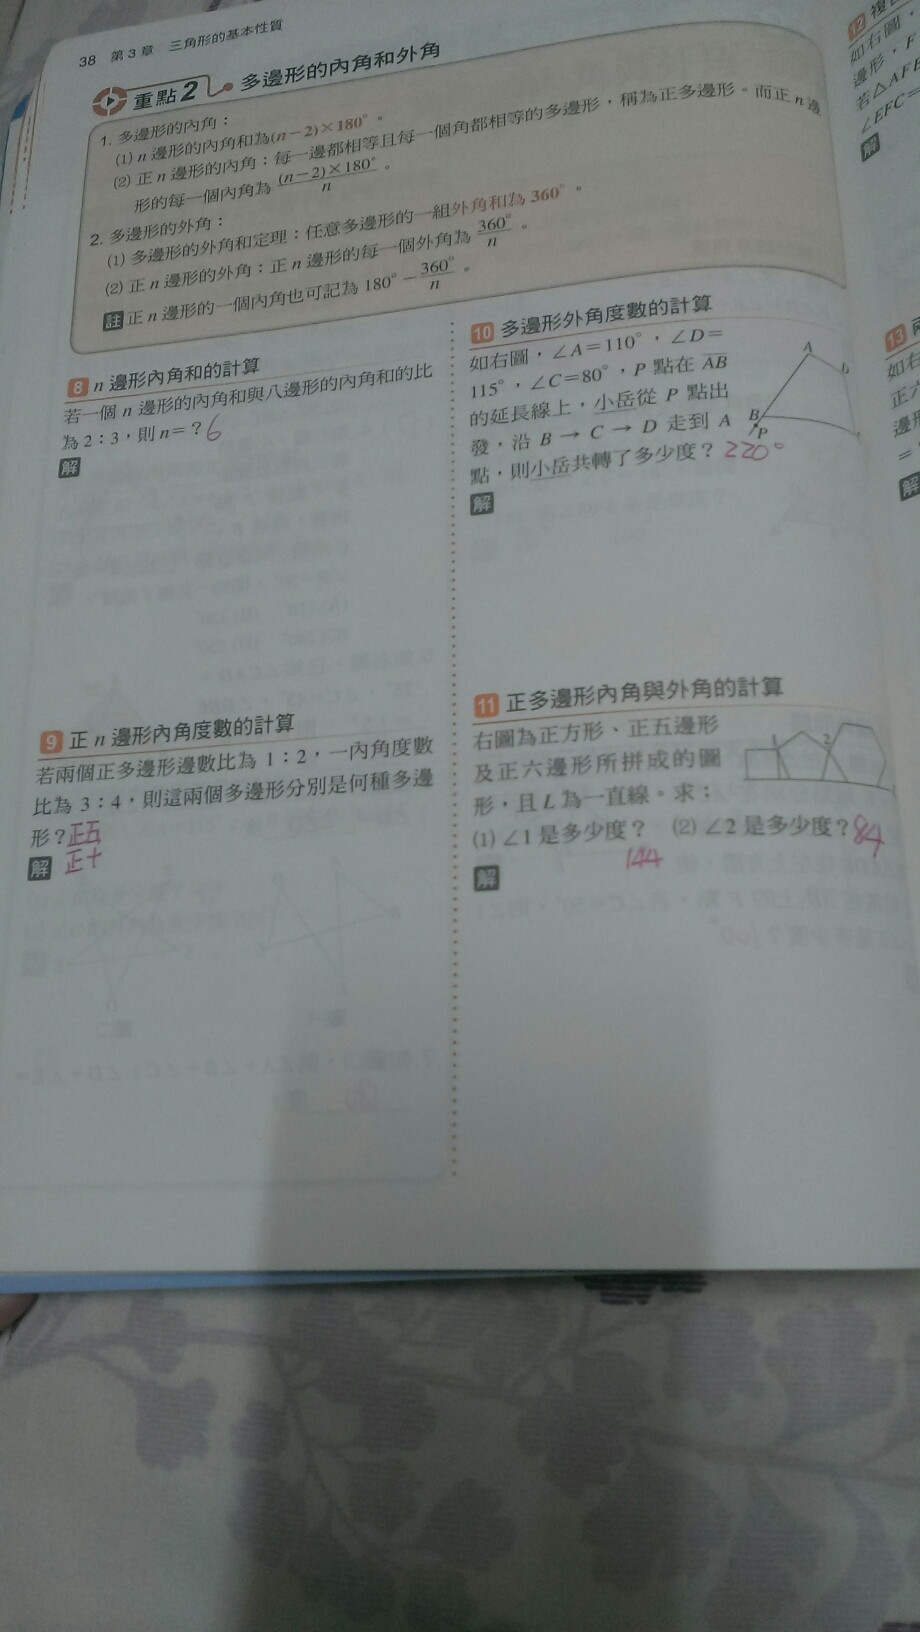 38 第3章 三角形的基本性質
重點2 多邊形的內角和外角
1. 多邊形的內角：
(1) n 邊形的內角和為(n－2)×180°。
(2) 正 n 邊形的內角：每一邊都相等且每一個角都相等的多邊形，稱為正多邊形。而正 n 邊
形的每一個內角為 (n－2)×180°/n 。
2. 多邊形的外角：
(1) 多邊形的外角和定理：任意多邊形的一組外角和為 360°。
(2) 正 n 邊形的外角：正 n 邊形的每一個外角為 360°/n 。
註 正 n 邊形的一個內角也可記為 180°－360°/n 。
8 n 邊形內角和的計算
若一個 n 邊形的內角和與八邊形的內角和的比
為 2：3，則 n＝？6
解
9 正 n 邊形內角度數的計算
若兩個正多邊形邊數比為 1：2，一內角度數
比為 3：4，則這兩個多邊形分別是何種多邊
形？正五
解 正十
10 多邊形外角度數的計算
如右圖，∠A＝110°，∠D＝
115°，∠C＝80°，P 點在 AB
的延長線上，小岳從 P 點出
發，沿 B → C → D 走到 A
點，則小岳共轉了多少度？220°
解
A
B
P
11 正多邊形內角與外角的計算
右圖為正方形、正五邊形
及正六邊形所拼成的圖
形，且 L 為一直線。求：
(1) ∠1 是多少度？ (2) ∠2 是多少度？84
144
解
1
2
12
如右圖，
邊形，F
若△AFE
∠EFC＝
解
13
如右
正六
邊形
＝
解